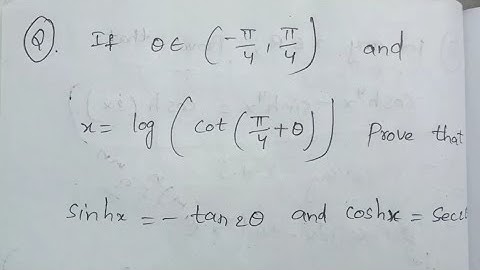 Q. If θ ∈ (-π/4, π/4) and
x = log (cot (π/4 + θ)) Prove that
sinhx = - tan2θ and coshx =